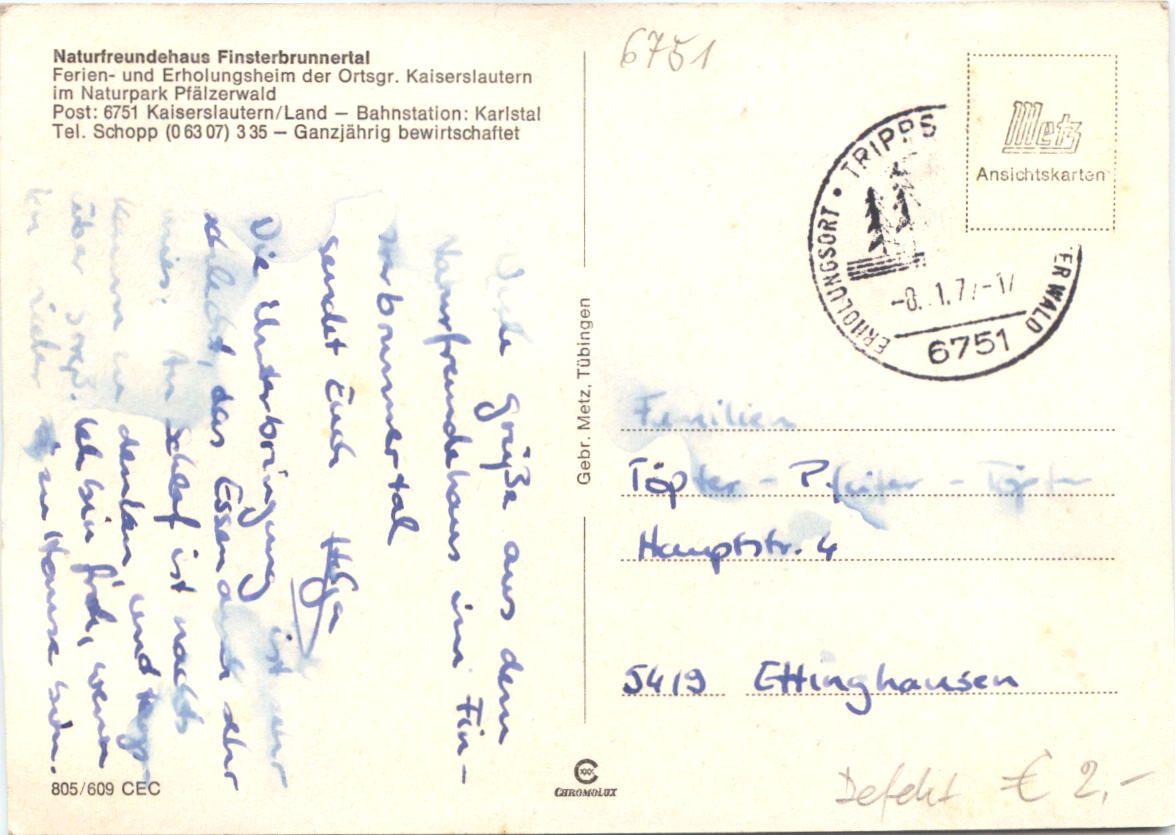 Naturfreundehaus Finsterbrunnertal
Ferien- und Erholungsheim der Ortsgr. Kaiserslautern
im Naturpark Pfälzerwald
Post: 6751 Kaiserslautern/Land – Bahnstation: Karlstal
Tel. Schopp (0 63 07) 3 35 – Ganzjährig bewirtschaftet
Viele grüße aus dem
Naturfreundehaus im Fin-
sterbrunnertal
sendet Euch Helga
Die Unterbringung ist sehr
schlecht, das Essen auch sehr
mies. An Schlaf ist nachts
kaum zu denken, und tags-
über Ich bin froh, wenn
ich wieder zu Hause bin.
805/609 CEC
Gebr. Metz, Tübingen
CHROMOLUX
6751
Metz
Ansichtskarten
ERHOLUNGSORT • TRIPPS ERWALD
6751
Familien
Töpfer - Pfeifer - Töpfer
Hauptstr. 4
5419 Ettinghausen
Defekt € 2,-